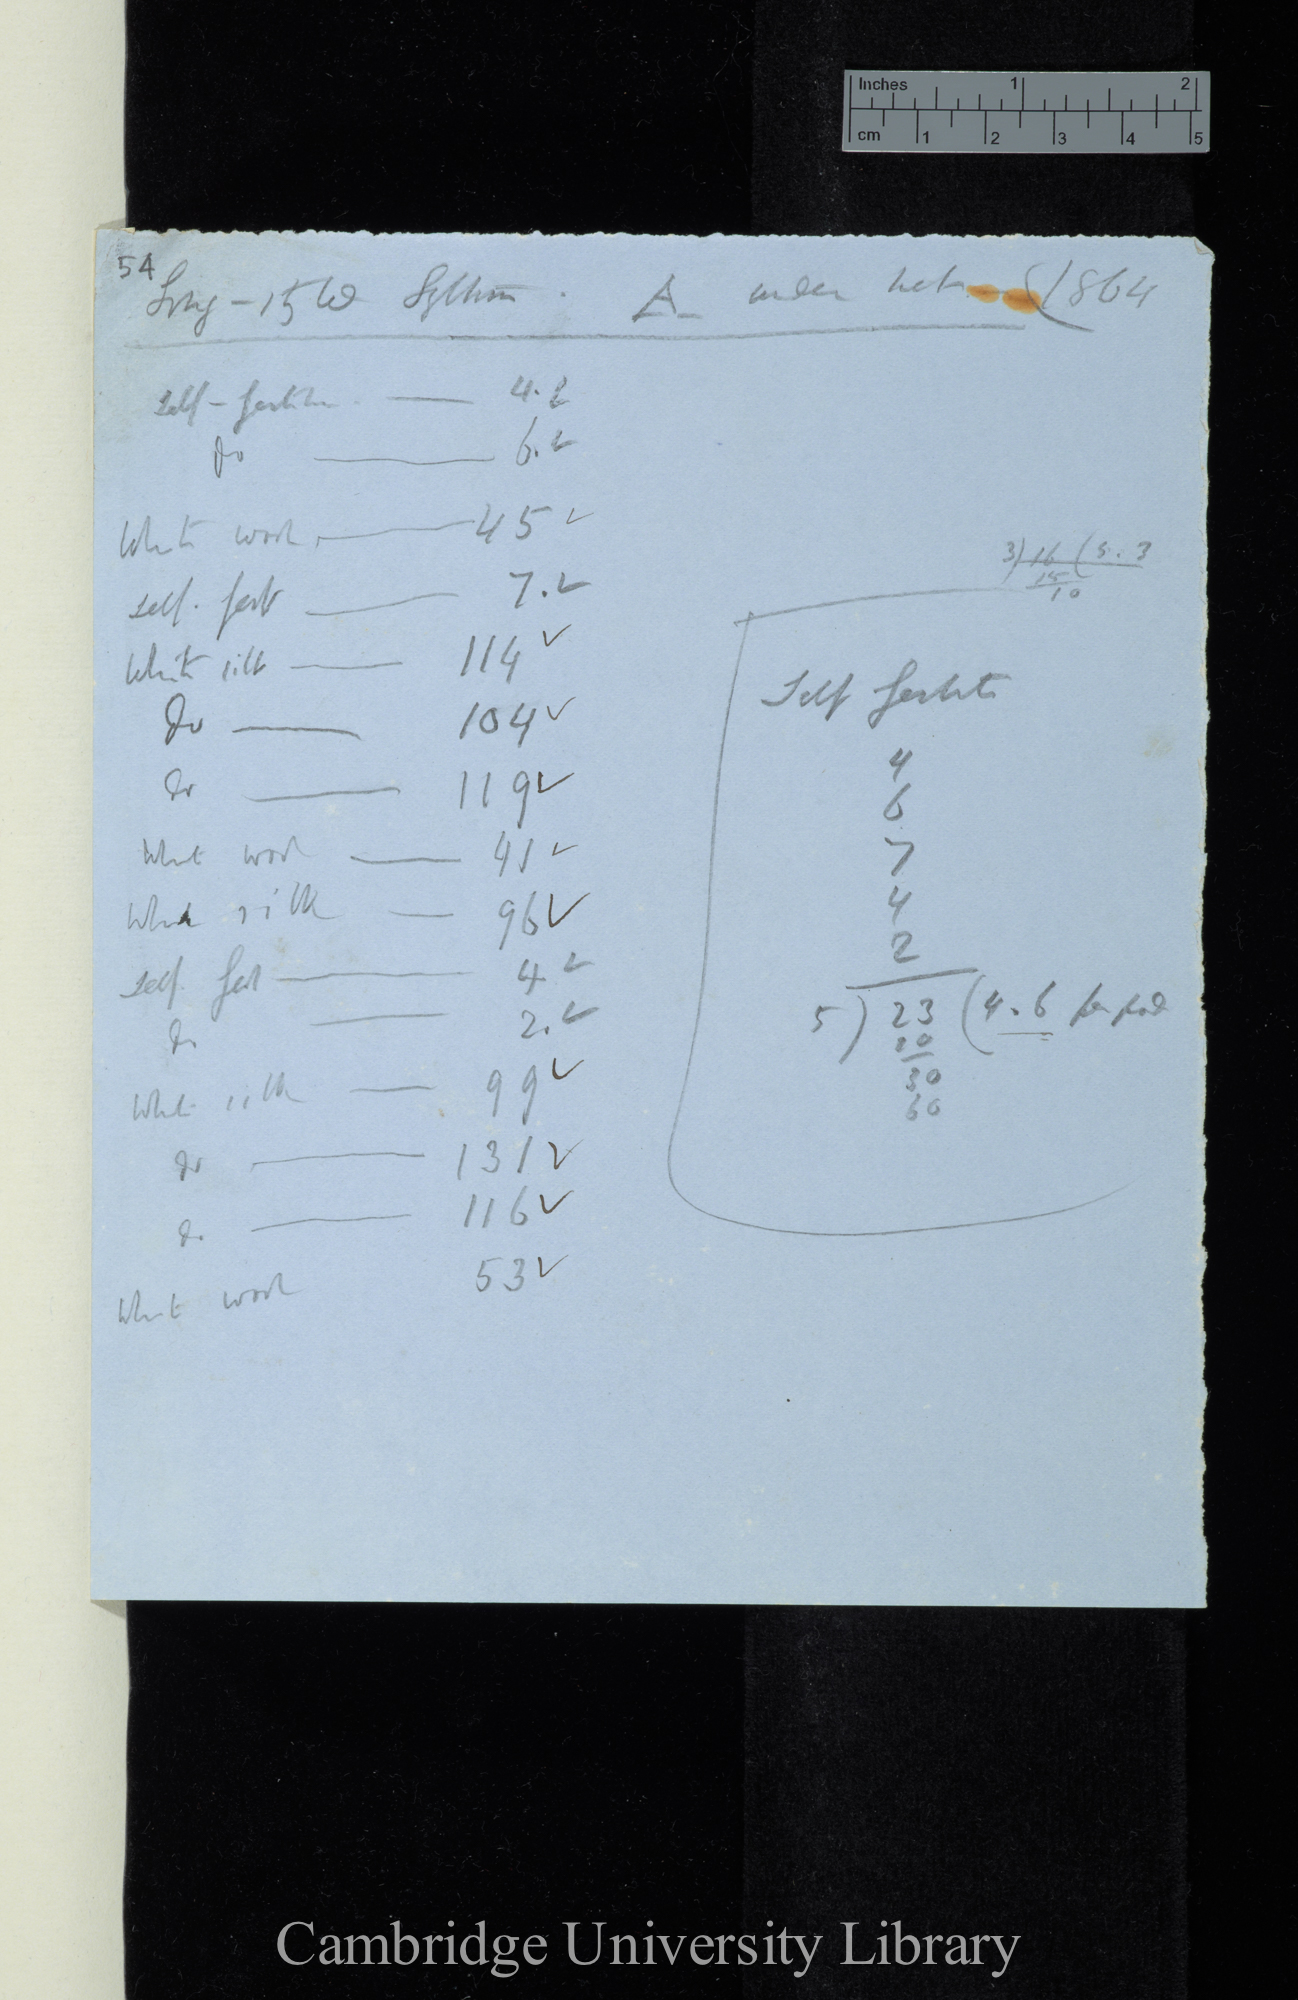 Inches 1 2
cm 1 2 3 4 5
54
Long-styled Lythrum. A under net (1864
Self-fertilis. — 4.✓
do — 6.✓
White wool — 45 ✓
Self. fert — 7.✓
White silk — 114 ✓
Do — 104 ✓
do — 119 ✓
White wool — 41 ✓
White silk — 96 ✓
Self. fert — 4 ✓
do — 2.✓
White silk — 99 ✓
do — 131 ✓
do — 116 ✓
White wool 53 ✓
3) 16 (5.3
15
10
Self fertilis
4
6
7
4
2
5) 23 (4.6 per pod
20
30
60
Cambridge University Library